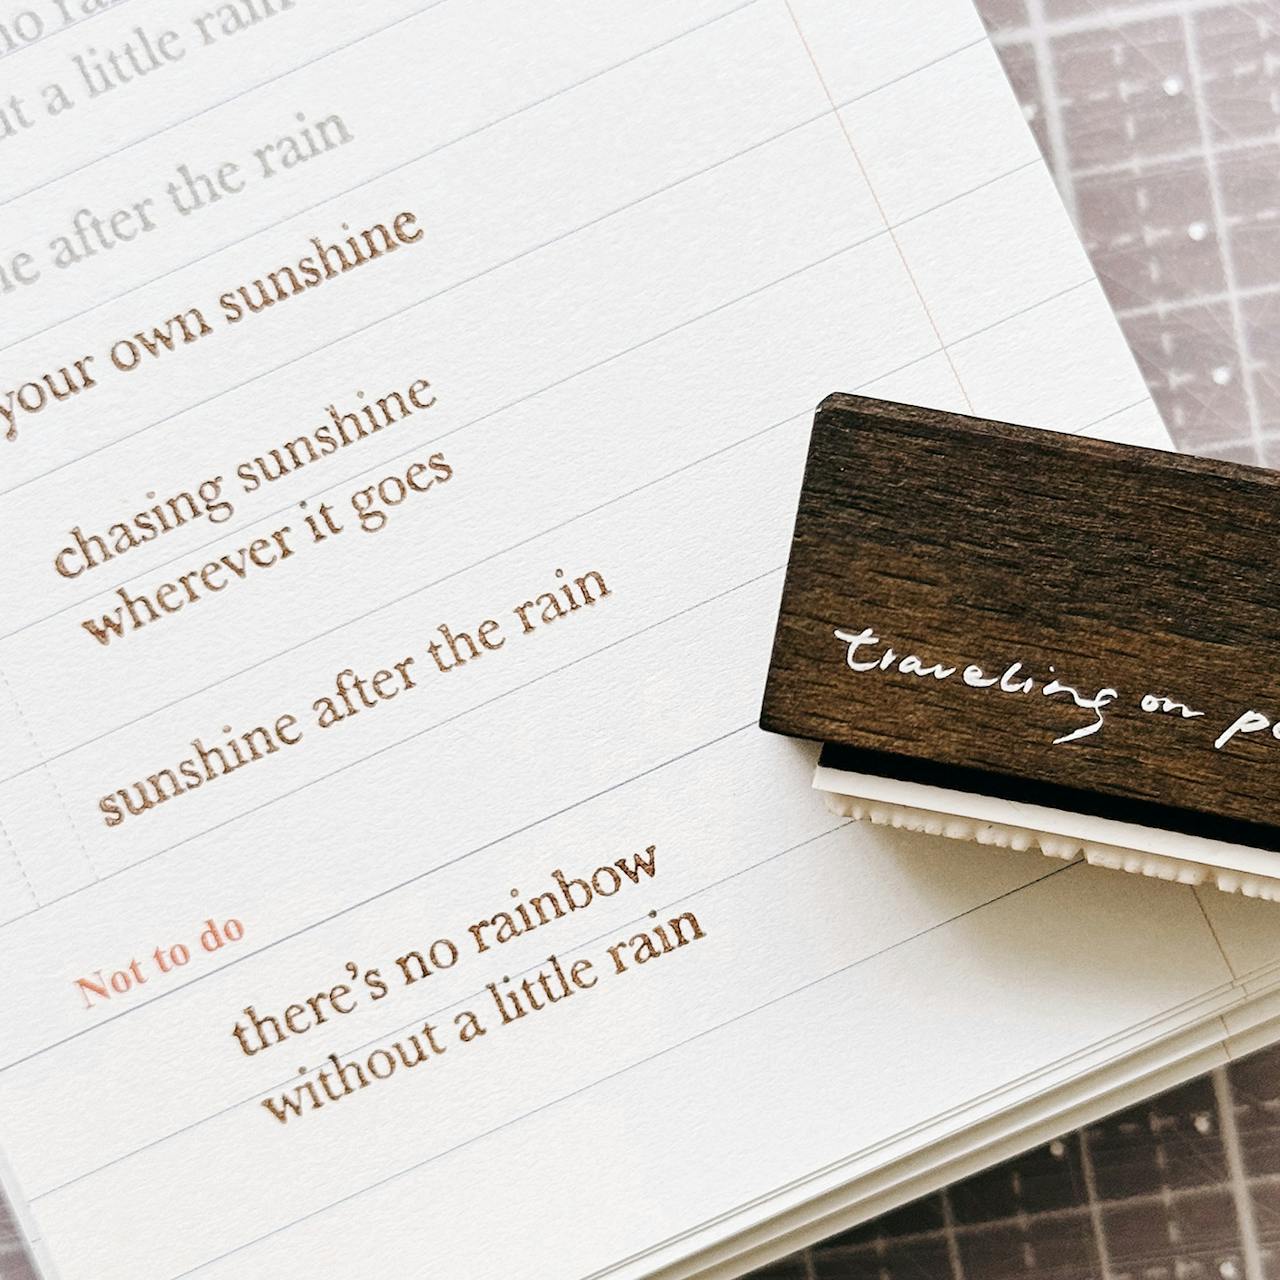 no
a little rain
after the rain
your own sunshine
chasing sunshine
wherever it goes
sunshine after the rain
Not to do
there's no rainbow
without a little rain
traveling on